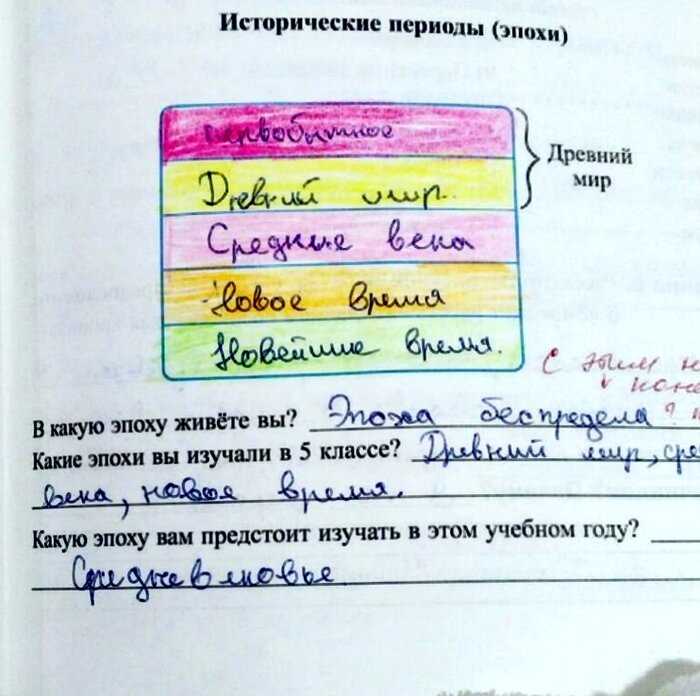 Исторические периоды (эпохи)
Первобытное
Древний мир
Древний
мир
Средние века
Новое время
Новейшие время.
С этим
В какую эпоху живёте вы? Эпоха беспредела ?
Какие эпохи вы изучали в 5 классе? Древний мир, сре
века, новое время.
Какую эпоху вам предстоит изучать в этом учебном году?
Средневековье